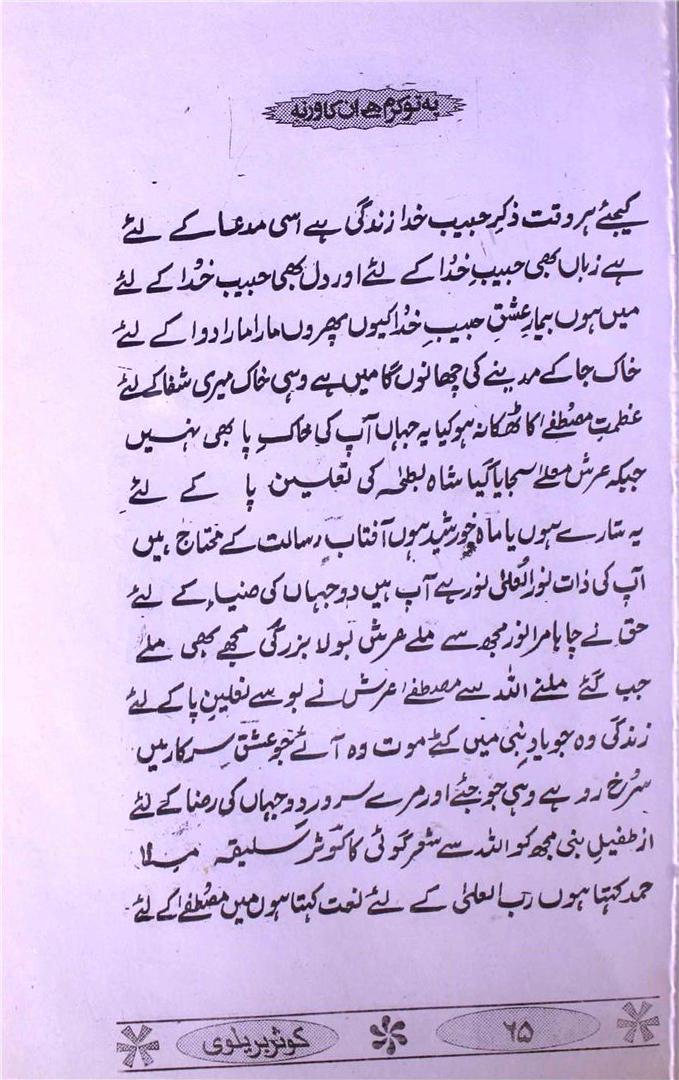 یہ تو کرم ہے ان کا ورنہ
کیجئے ہر وقت ذکرِ حبیب خدا زندگی ہے اسی مدعا کے لئے
ہے زباں بھی حبیبِ خُدا کے لئے اور دل بھی حبیب خُدا کے لئے
میں ہوں بیمارِ عشقِ حبیبِ خُدا کیوں پھروں مارا مارا دوا کے لئے
خاک جا کے مدینے کی چھانوں گا میں ہے وہی خاک میری شفا کے لئے
عظمتِ مصُطفےٰ کا ٹھکانہ ہو کیا یہ جہاں آپ کی خاکِ پا بھی نہیں
جبکہ عرش معلےٰ سجایا گیا شاہ بطحٰہ کی نعلین پا کے لئے
یہ ستارے ہوں یا ماہ خورشید ہوں آفتاب رسالت کے محتاج ہیں
آپ کی ذات نور العُلیٰ نور ہے آپ ہیں دو جہاں کی ضیاء کے لئے
حق نے چاہا مرا نور مجھ سے ملے عرش بولا بزرگی مجھے بھی ملے
جب گئے ملنے اللہ سے مصطفےٰ عرش نے بوسے نعلینِ پا کے لئے
زندگی وہ جو یادِ نبی میں کٹے موت وہ آئے جو عشقِ سرکار میں
سُرخ رو ہے وہی جو جئے اور مرے سرورِ دوجہاں کی رضا کے لئے
از طفیلِ نبی مجھ کو اللہ سے شعر گوئی کا کوثر سلیقہ ملا
حمد کہتا ہوں رب العلیٰ کے لئے نعت کہتا ہوں میں مصُطفےٰ کے لئے
۶۵
کوثر بریلوی